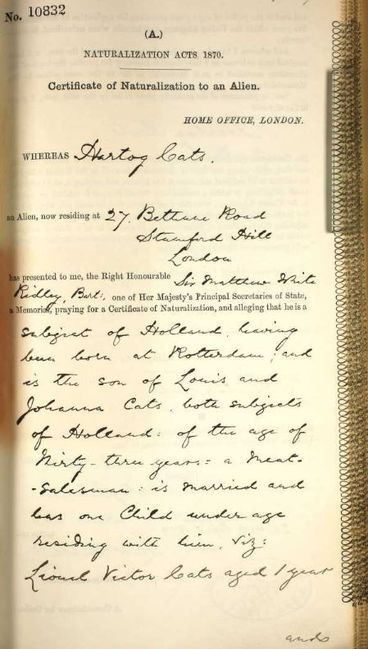 No. 10832
(A.)
NATURALIZATION ACTS 1870.
Certificate of Naturalization to an Alien.
HOME OFFICE, LONDON.
WHEREAS Hartog Cats.
an Alien, now residing at 27, Bethune Road
Stamford Hill
London
has presented to me, the Right Honourable Sir Matthew White
Ridley, Bart:, one of Her Majesty's Principal Secretaries of State,
a Memorial, praying for a Certificate of Naturalization, and alleging that he is a
subject of Holland, having
been born at Rotterdam; and
is the son of Louis and
Johanna Cats, both subjects
of Holland: of the age of
Thirty-three years: a Meat-
-Salesman: is married and
has one Child under age
residing with him, viz:
Lionel Victor Cats aged 1 year
and